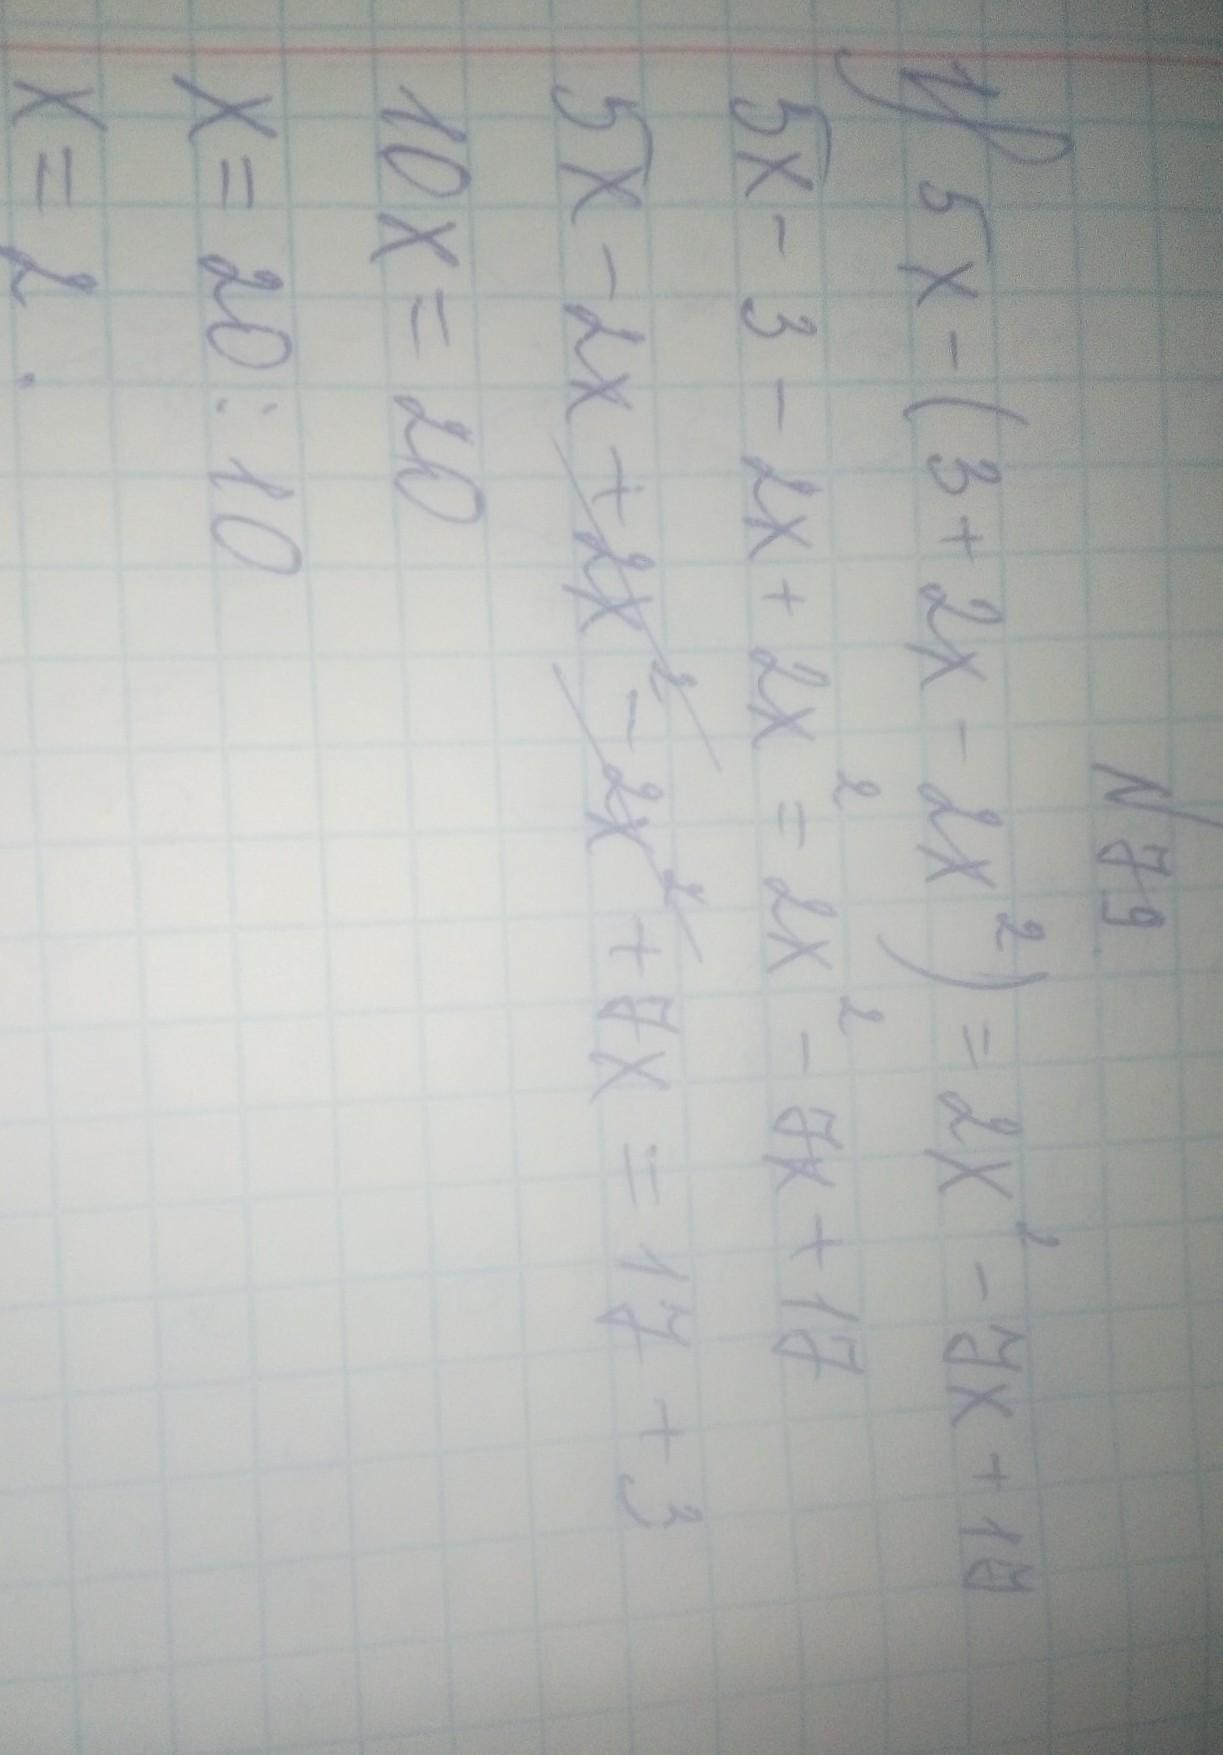 N 79
1) 5x - (3 + 2x - 2x²) = 2x² - 7x + 17
5x - 3 - 2x + 2x² = 2x² - 7x + 17
5x - 2x + 2x² - 2x² + 7x = 17 + 3
10x = 20
x = 20 : 10
x = 2.